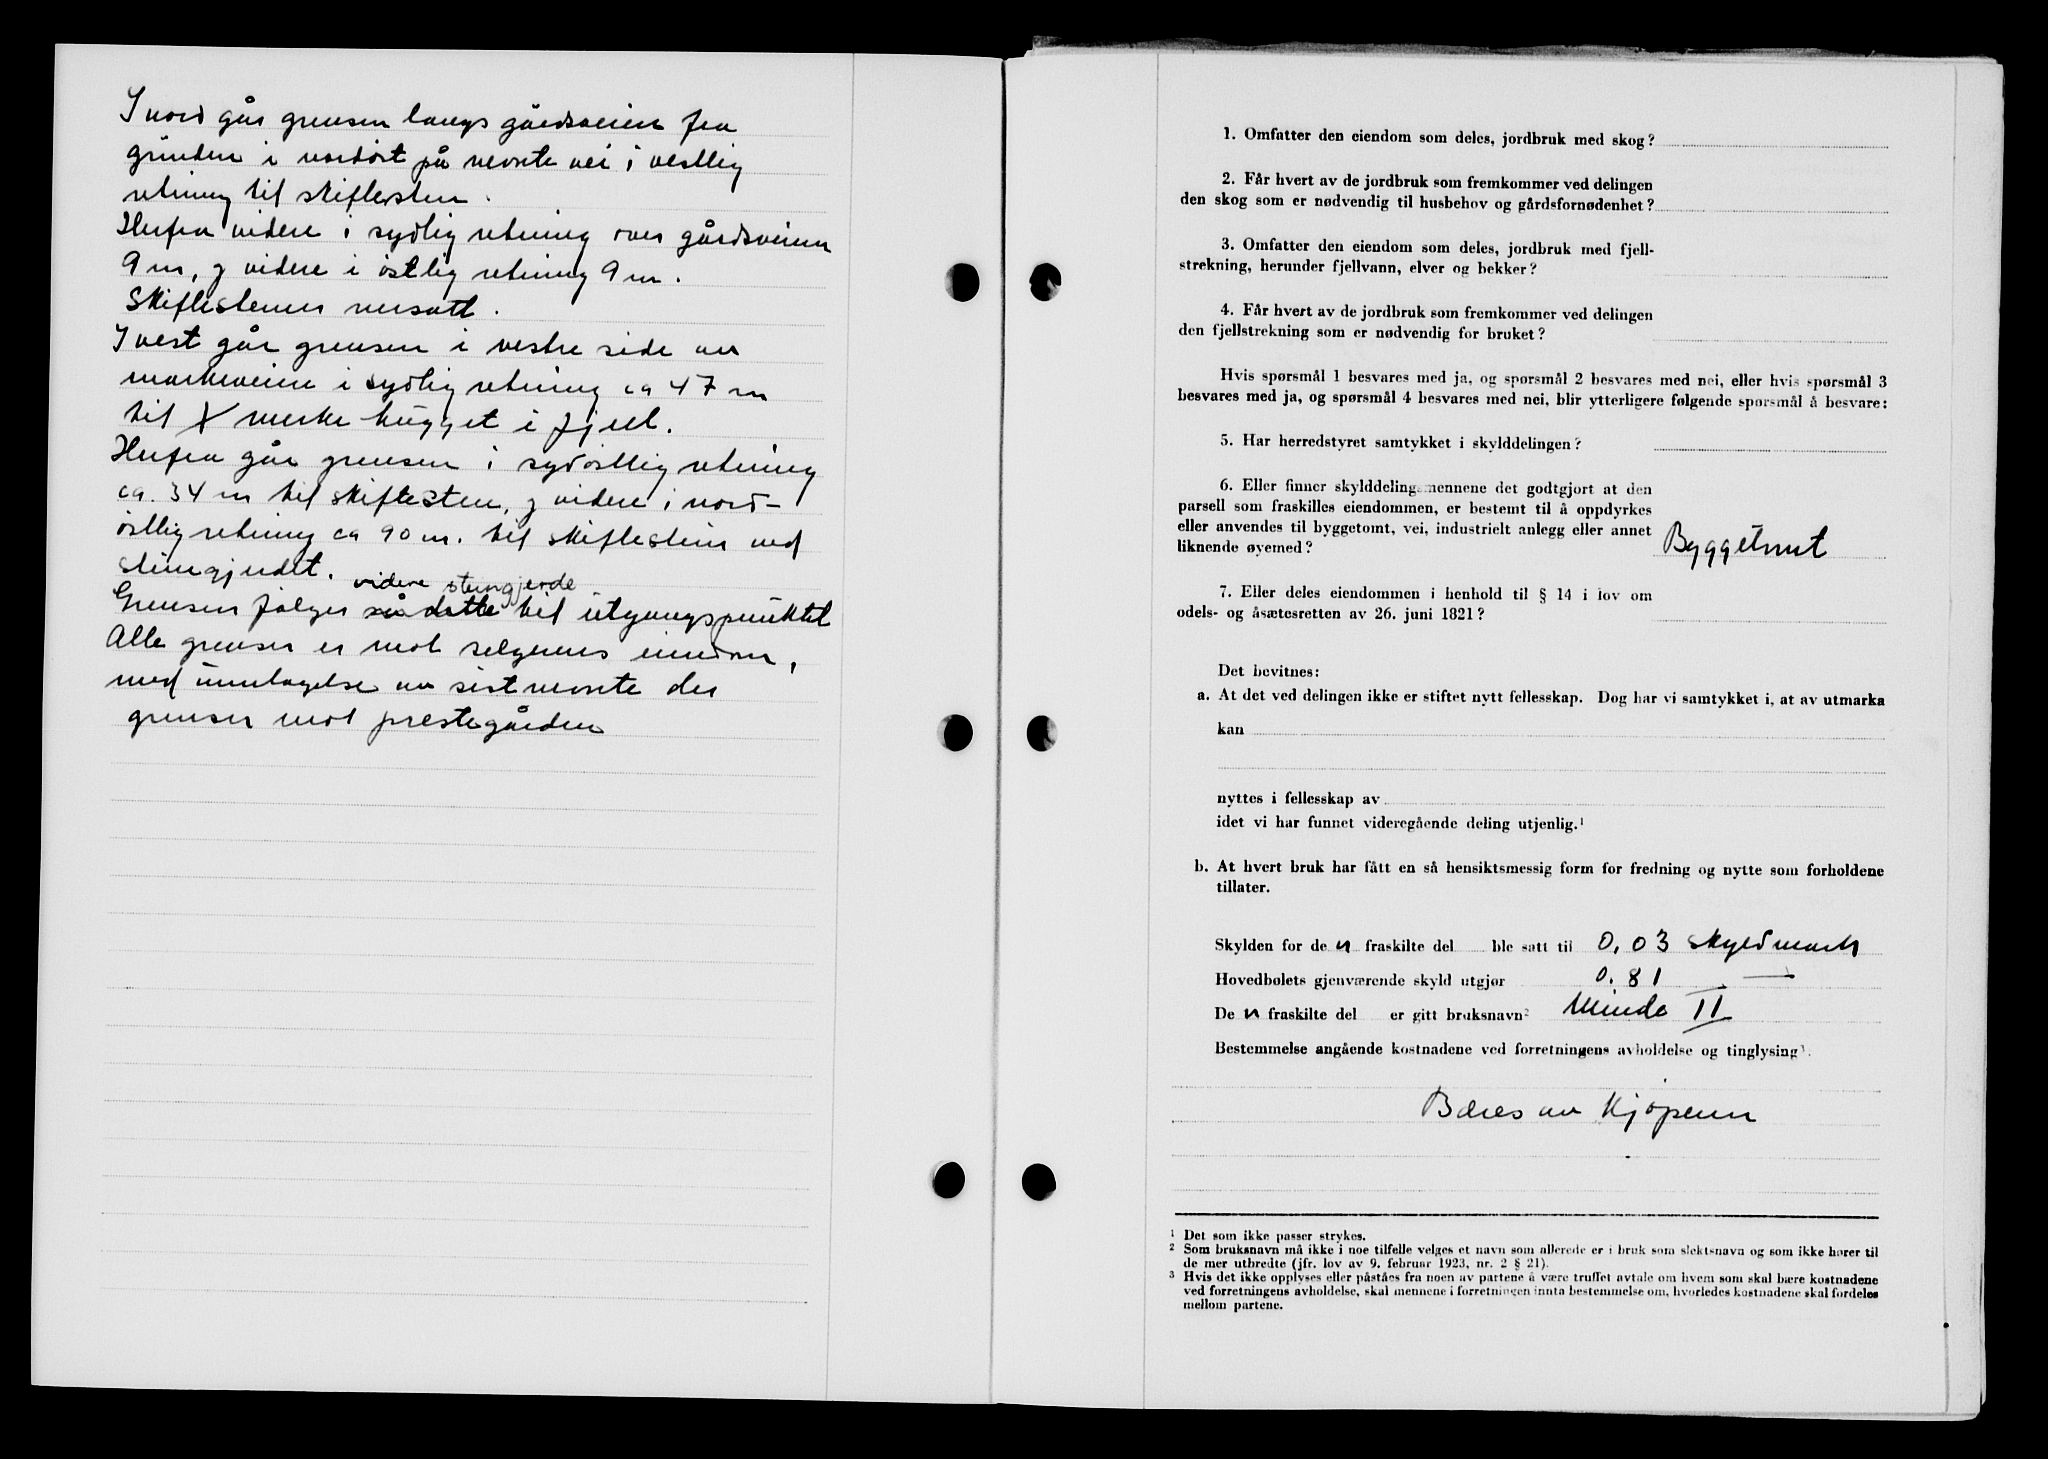 I nord går grensen langs gårdsveien fra
grinden i nordöst på nevnte vei i vestlig
retning til skiftesten.
Herfra videre i sydlig retning over gårdsveien
9 m, og videre i östlig retning 9 m.
Skiftestener nersatt.
I vest går grensen i vestre side av
markeveien i sydlig retning ca 47 m
til X merke hugget i fjell.
Herfra går grensen i sydöstlig retning
ca. 34 m til skiftesten, og videre i nord-
östlig retning ca 90 m. til skiftestein ved
steingjerdet.
videre steingjerde
Grensen fölger så dette til utgangspunktet
Alle grenser er mot selgerens eiendom,
med unntagelse av sistnevnte der
grenser mot prestegården
1. Omfatter den eiendom som deles, jordbruk med skog?
2. Får hvert av de jordbruk som fremkommer ved delingen
den skog som er nødvendig til husbehov og gårdsfornødenhet?
3. Omfatter den eiendom som deles, jordbruk med fjell-
strekning, herunder fjellvann, elver og bekker?
4. Får hvert av de jordbruk som fremkommer ved delingen
den fjellstrekning som er nødvendig for bruket?
Hvis spørsmål 1 besvares med ja, og spørsmål 2 besvares med nei, eller hvis spørsmål 3
besvares med ja, og spørsmål 4 besvares med nei, blir ytterligere følgende spørsmål å besvare:
5. Har herredstyret samtykket i skylddelingen?
6. Eller finner skylddelingsmennene det godtgjort at den
parsell som fraskilles eiendommen, er bestemt til å oppdyrkes
eller anvendes til byggetomt, vei, industrielt anlegg eller annet
liknende øyemed? Byggetomt
7. Eller deles eiendommen i henhold til § 14 i lov om
odels- og åsætesretten av 26. juni 1821?
Det bevitnes:
a. At det ved delingen ikke er stiftet nytt fellesskap. Dog har vi samtykket i, at av utmarka
kan
nyttes i fellesskap av
idet vi har funnet videregående deling utjenlig.¹
b. At hvert bruk har fått en så hensiktsmessig form for fredning og nytte som forholdene
tillater.
Skylden for de n fraskilte del ble satt til 0,03 skyldmark
Hovedbølets gjenværende skyld utgjør 0.81 —
De n fraskilte del er gitt bruksnavn² Minde II
Bestemmelse angående kostnadene ved forretningens avholdelse og tinglysing³.
Bæres av kjöperen
¹ Det som ikke passer strykes.
² Som bruksnavn må ikke i noe tilfelle velges et navn som allerede er i bruk som slektsnavn og som ikke hører til
de mer utbredte (jfr. lov av 9. februar 1923, nr. 2 § 21).
³ Hvis det ikke opplyses eller påståes fra noen av partene å være truffet avtale om hvem som skal bære kostnadene
ved forretningens avholdelse, skal mennene i forretningen innta bestemmelse om, hvorledes kostnadene skal fordeles
mellom partene.